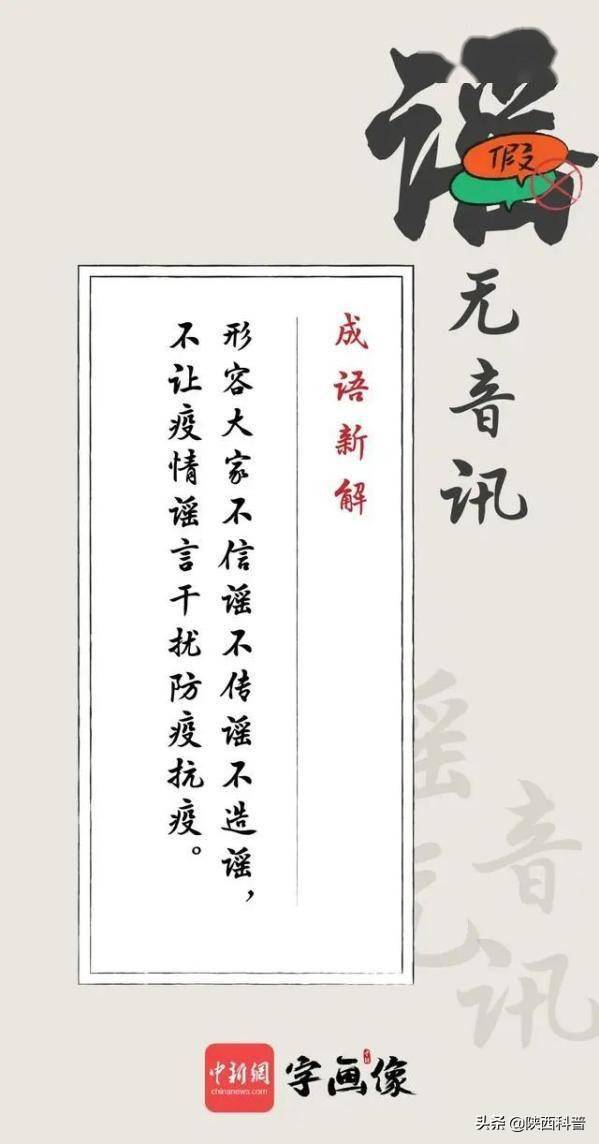 谣无音讯
假
成语新解
形容大家不信谣不传谣不造谣，
不让疫情谣言干扰防疫抗疫。
谣无音讯
中新網
chinanews.com
字画像
头条 @陕西科普